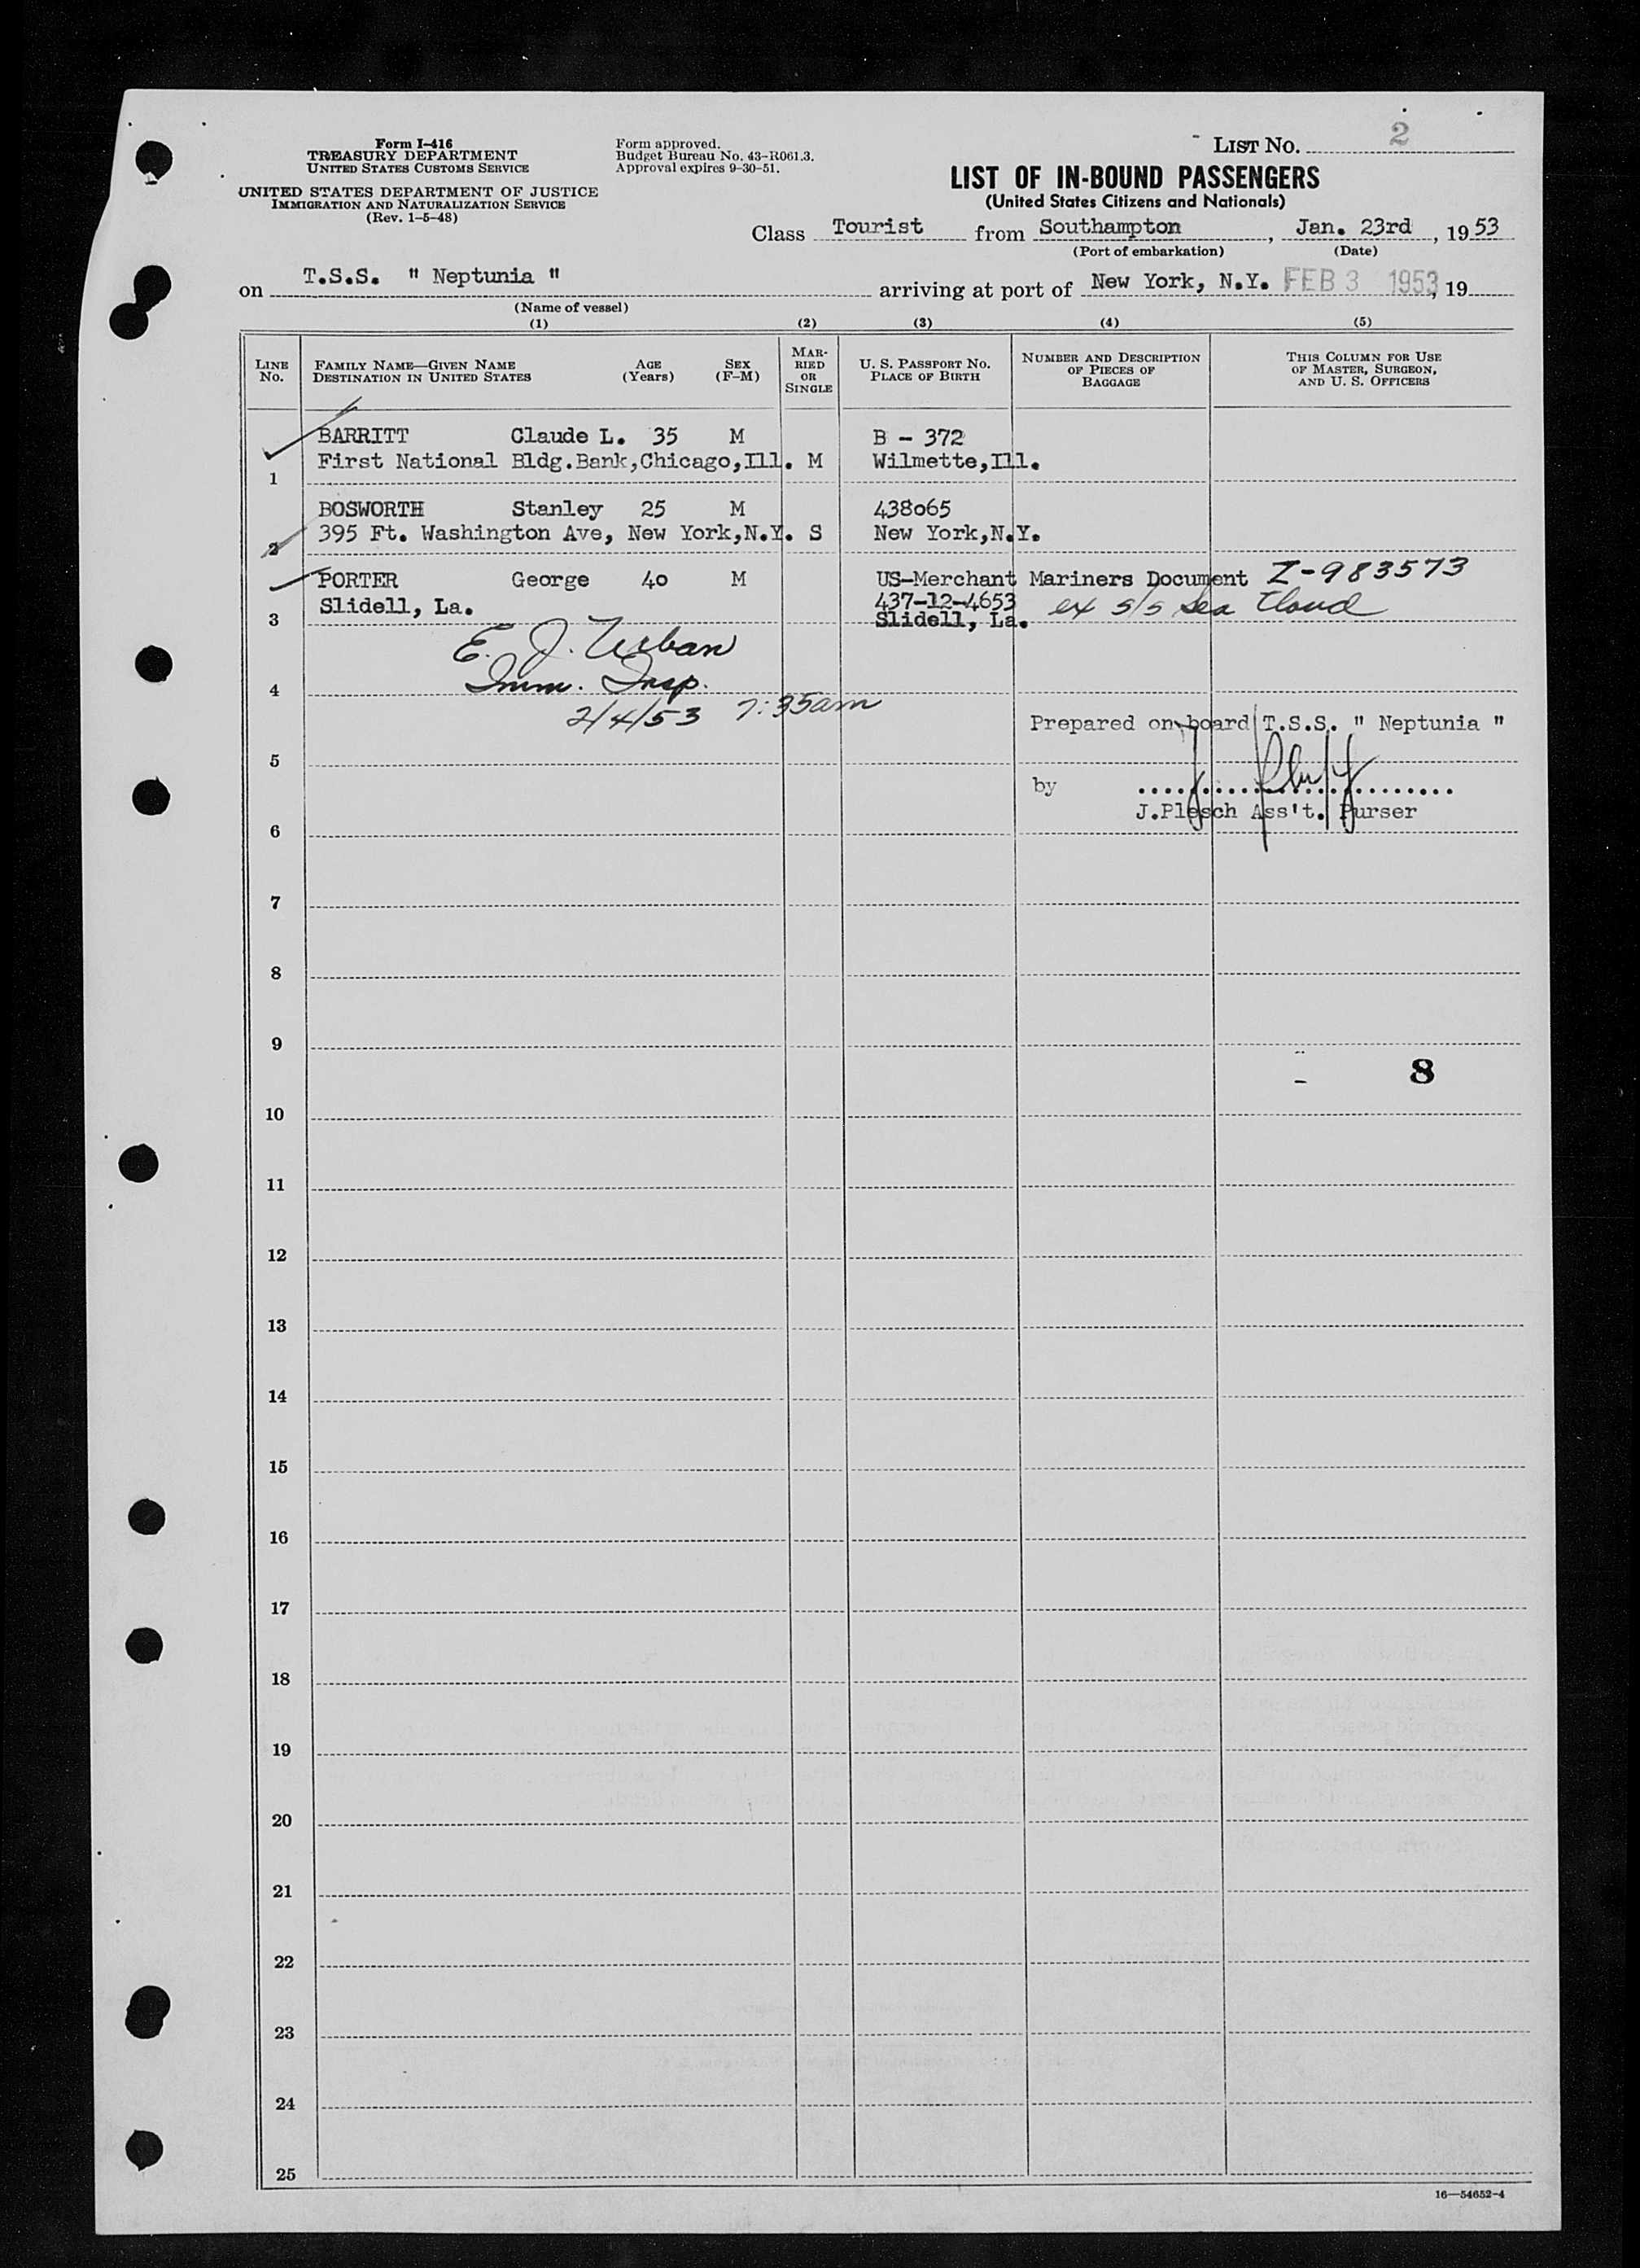 Form I-416
TREASURY DEPARTMENT
UNITED STATES CUSTOMS SERVICE
UNITED STATES DEPARTMENT OF JUSTICE
IMMIGRATION AND NATURALIZATION SERVICE
(Rev. 1-5-48)
Form approved.
Budget Bureau No. 43-R061.3.
Approval expires 9-30-51.
LIST NO. 2
LIST OF IN-BOUND PASSENGERS
(United States Citizens and Nationals)
Class Tourist from Southampton, Jan. 23rd, 1953
(Port of embarkation) (Date)
on T.S.S. " Neptunia " arriving at port of New York, N.Y. FEB 3 1953, 19
(Name of vessel)
(1) (2) (3) (4) (5)
LINE NO.
FAMILY NAME—GIVEN NAME AGE SEX
DESTINATION IN UNITED STATES (Years) (F-M)
MARRIED OR SINGLE
U. S. PASSPORT NO.
PLACE OF BIRTH
NUMBER AND DESCRIPTION
OF PIECES OF
BAGGAGE
THIS COLUMN FOR USE
OF MASTER, SURGEON,
AND U. S. OFFICERS
BARRITT Claude L. 35 M B - 372
First National Bldg.Bank,Chicago,Ill. M Wilmette,Ill.
1
BOSWORTH Stanley 25 M 438065
395 Ft. Washington Ave, New York,N.Y. S New York,N.Y.
2
PORTER George 40 M US-Merchant Mariners Document Z-983573
Slidell, La. 437-12-4653 ex s/s Sea Cloud
3 Slidell, La.
E. J. Urban
Imm. Insp.
4
2/4/53 7:35am
Prepared on board T.S.S. " Neptunia "
5
by ........................
J.Plesch Ass't. Purser
6
7
8
9
8
10
11
12
13
14
15
16
17
18
19
20
21
22
23
24
25
16—54652-4